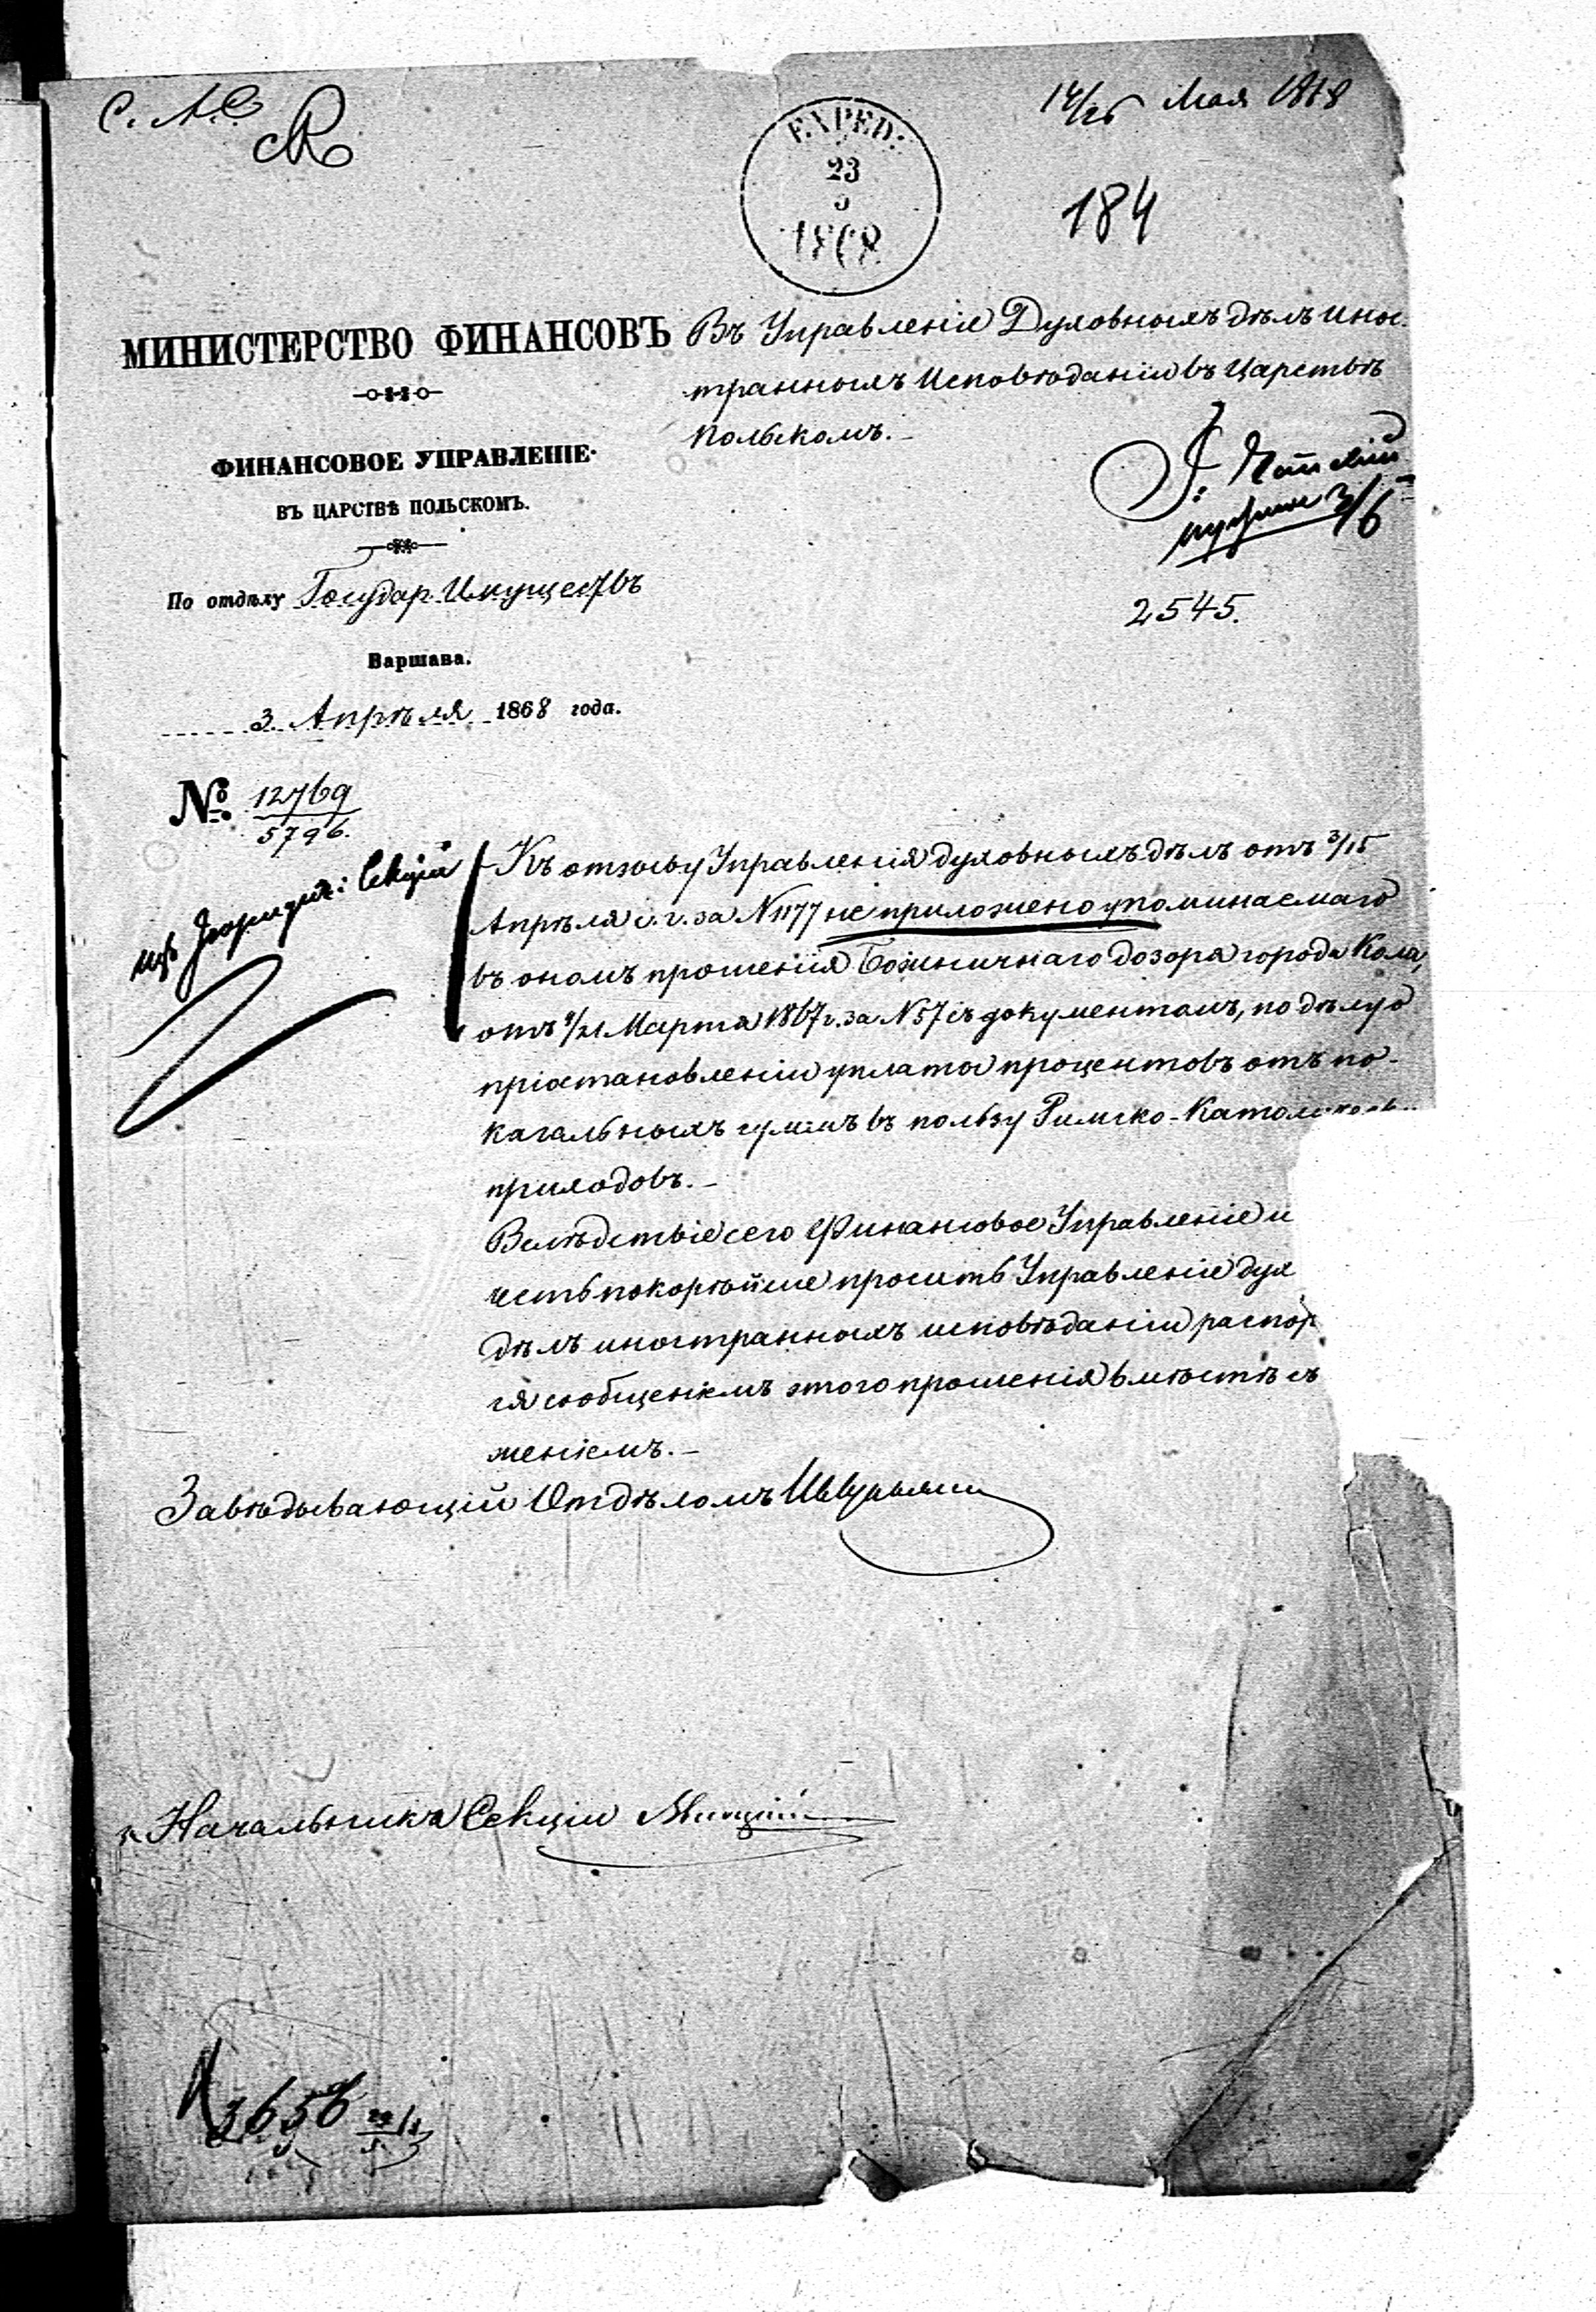 С. А. С.
14/26 Мая 1868
EXPED:
23
5
1868
184
МИНИСТЕРСТВО ФИНАНСОВЪ
ФИНАНСОВОЕ УПРАВЛЕНІЕ
ВЪ ЦАРСТВѢ ПОЛЬСКОМЪ.
По отдѣлу Государ. Имуществъ
Варшава.
3. Апрѣля 1868 года.
№ 12769
5796.
Въ Управленіе Духовныхъ дѣлъ инос.
транныхъ Исповѣданій въ Царствѣ
Польскомъ.–
3/6
2545.
Секція
Къ отзыву Управленія духовныхъ дѣлъ отъ 3/15
Апрѣля с. г. за N 1177 не приложено упоминаемаго
въ ономъ прошенія Божничнаго дозора города Кола,
отъ 9/21 Марта 1867 г. за N 57 съ документомъ, по дѣлу о
пріостановленіи уплаты процентовъ отъ по-
кагальныхъ суммъ въ пользу Римско-Католическ
приходовъ.–
Вслѣдствіе сего Финансовое Управленіе и
честь покорнѣйше проситъ Управленіе дух
дѣлъ иностранныхъ исповѣданій распор
ся сообщеніемъ этого прошенія вмѣстѣ съ
женіемъ.–
Завѣдывающій Отдѣломъ
Начальникъ Секціи
N 3656